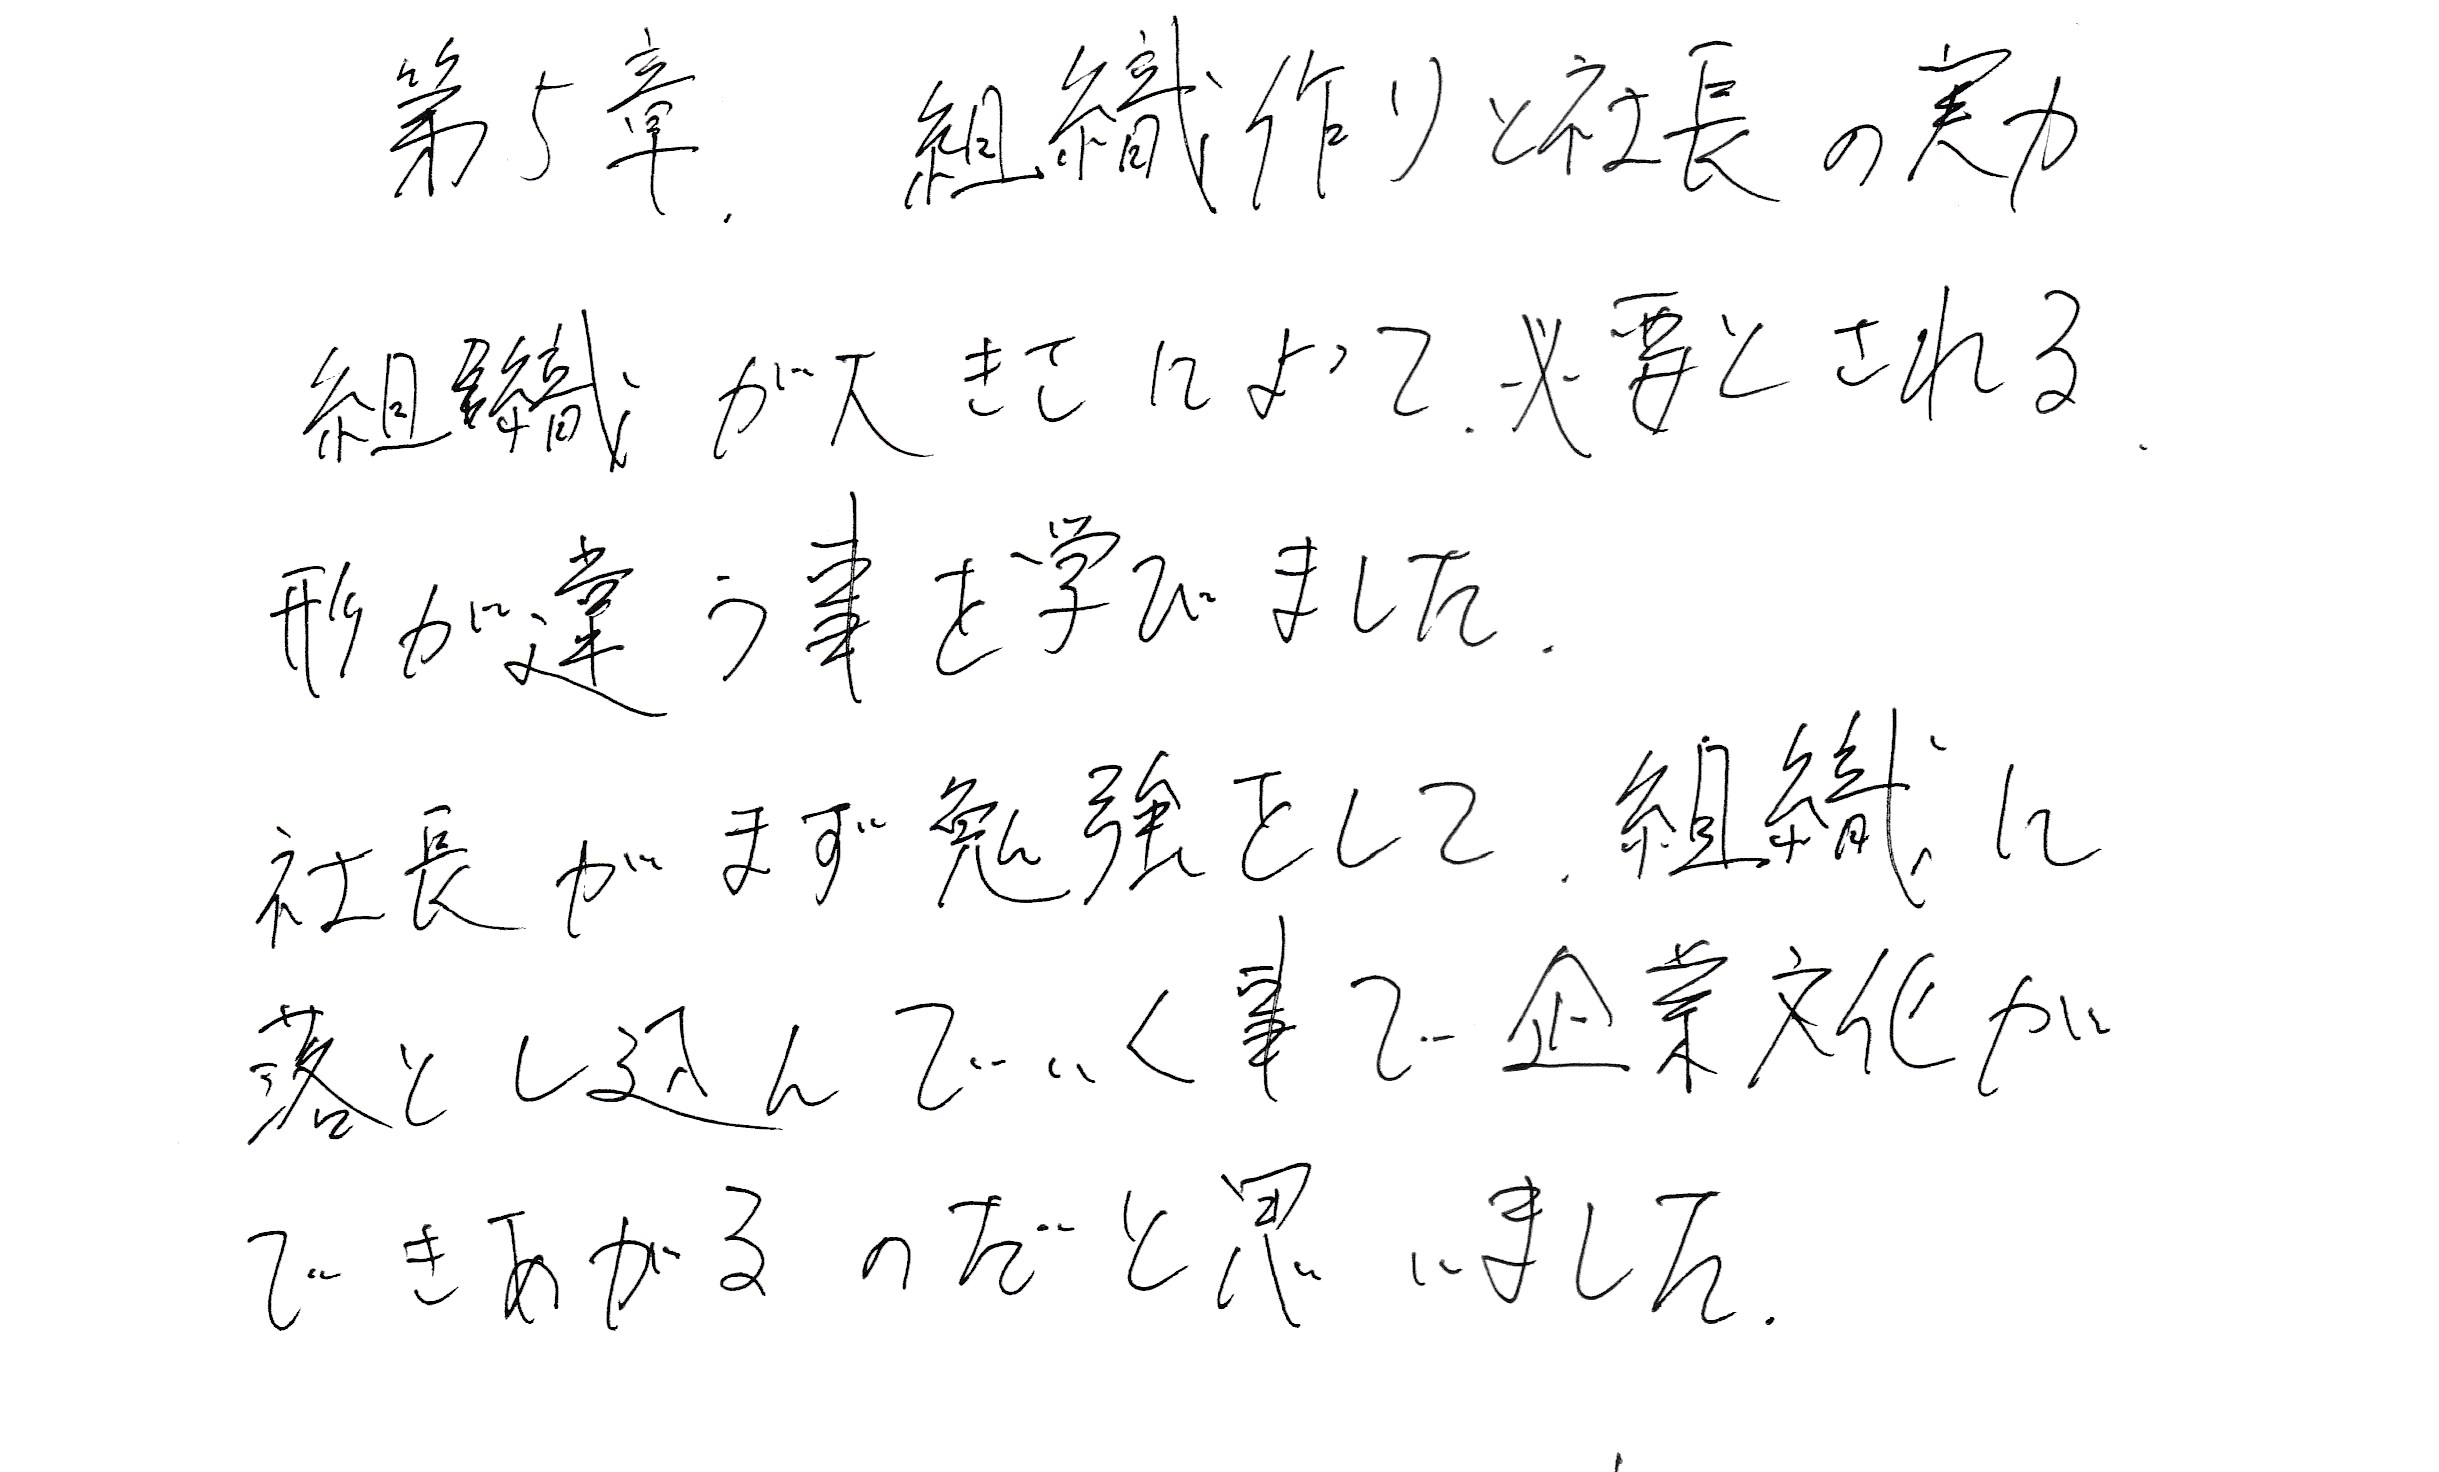 第5章. 組織作りと社長の実力
組織が大きさによって.必要とされる.
形が違う事を学びました.
社長がまず勉強をして.組織に
落とし込んでいく事で企業文化が
できあがるのだと思いました.